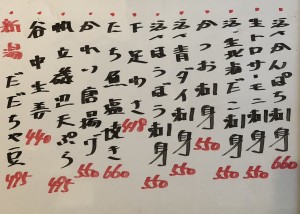 活〆かんぱち刺身 660
生トロサーモン刺身 550
活〆生北海だこ刺身 550
かつお刺身 550
活〆青ダイ刺身 550
活〆ほうぼう刺身 550
下足わさ 418
たち魚塩焼き 660
かれい唐揚げ 550
帆立磯辺天ぷら 495
谷中生姜 440
新潟だだちゃ豆 495